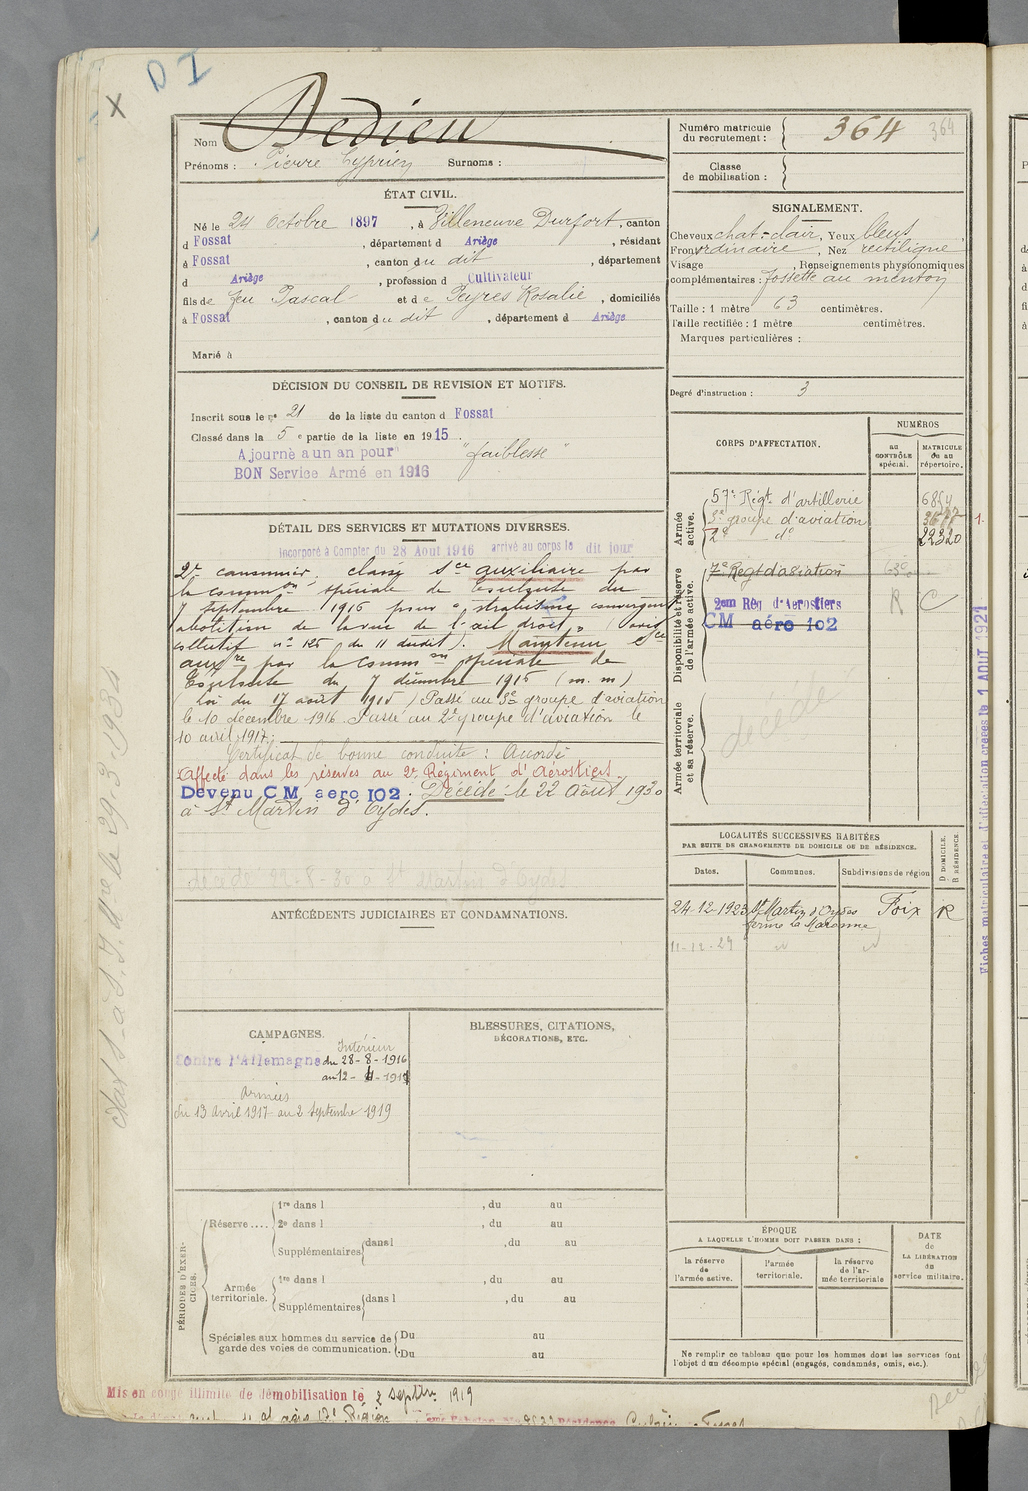 D I
X
Nom Dedieu
Prénoms : Pierre Cyprien Surnoms :
Numéro matricule du recrutement : 364 364
Classe de mobilisation :
ÉTAT CIVIL.
Né le 24 Octobre 1897, à Villeneuve Durfort, canton
d Fossat, département d Ariège, résidant
à Fossat, canton du dit, département
d Ariège, profession d Cultivateur
fils de feu Pascal et de Peyres Rosalie, domiciliés
à Fossat, canton du dit, département d Ariège
Marié à
SIGNALEMENT.
Cheveux chat-clair, Yeux bleus,
Front ordinaire, Nez rectiligne
Visage , Renseignements physionomiques
complémentaires : fossette au menton
Taille : 1 mètre 63 centimètres.
Taille rectifiée : 1 mètre centimètres.
Marques particulières :
Degré d'instruction : 3
DÉCISION DU CONSEIL DE REVISION ET MOTIFS.
Inscrit sous le n° 21 de la liste du canton d Fossat
Classé dans la 5e partie de la liste en 1915.
Ajourné a un an pour "faiblesse"
BON Service Armé en 1916
DÉTAIL DES SERVICES ET MUTATIONS DIVERSES.
Incorporé à Compter du 28 Août 1916 arrivé au corps le dit jour
2e canonnier, classé sce auxiliaire par
la common spéciale de du
7 septembre 1916 pour "strabisme convergent
abolition de la vue de l'œil droit" (avis
n° 125 du 11 dudit). Maintenu sce
auxre par la common spéciale de
du 7 décembre 1916 (m. m)
Loi du 17 août 1915) Passé au 3e groupe d'aviation
le 10 décembre 1916. Passé au 2e groupe d'aviation le
10 avril 1917.
Certificat de bonne conduite : Accordé
Affecté dans les réserves au 2e Régiment d'Aérostiers.
Devenu CM aero 102. Décédé le 22 Août 1930
à St Martin d'Oydes.
décédé 22-8-30 à St Martin d'Oydes
CORPS D'AFFECTATION.
NUMÉROS
au CONTRÔLE spécial.
MATRICULE ou au répertoire.
Armée active.
57e Régt d'artillerie 6854
3e groupe d'aviation 3677
2e do 22320
Disponibilité et réserve de l'armée active.
7e Regt d'aviation
2em Rég d'Aerostiers R C
CM aéro 102
Armée territoriale et sa réserve.
decédé
ANTÉCÉDENTS JUDICIAIRES ET CONDAMNATIONS.
LOCALITÉS SUCCESSIVES HABITÉES
PAR SUITE DE CHANGEMENTS DE DOMICILE OU DE RÉSIDENCE.
D DOMICILE. R RÉSIDENCE.
Dates. Communes. Subdivisions de région
24-12-1923 St Martin d'Oydes Foix R
ferme La Maronne
CAMPAGNES.
Contre l'Allemagne
Intérieur
du 28-8-1916
au 12-4-1917
Armées
du 13 avril 1917 au 2 septembre 1919
BLESSURES, CITATIONS,
DÉCORATIONS, ETC.
PÉRIODES D'EXERCICES.
Réserve....
1re dans l , du au
2e dans l , du au
Supplémentaires dans l , du au
Armée territoriale.
1re dans l , du au
Supplémentaires dans l , du au
Spéciales aux hommes du service de garde des voies de communication.
Du au
Du au
ÉPOQUE
A LAQUELLE L'HOMME DOIT PASSER DANS :
la réserve de l'armée active.
l'armée territoriale.
la réserve de l'armée territoriale
DATE de LA LIBÉRATION du service militaire.
Ne remplir ce tableau que pour les hommes dont les services font
l'objet d'un décompte spécial (engagés, condamnés, omis, etc.).
Mis en congé illimité de démobilisation le 2 septbre 1919
Fiches matriculaire et d'affectation créées le 1 AOUT 1921